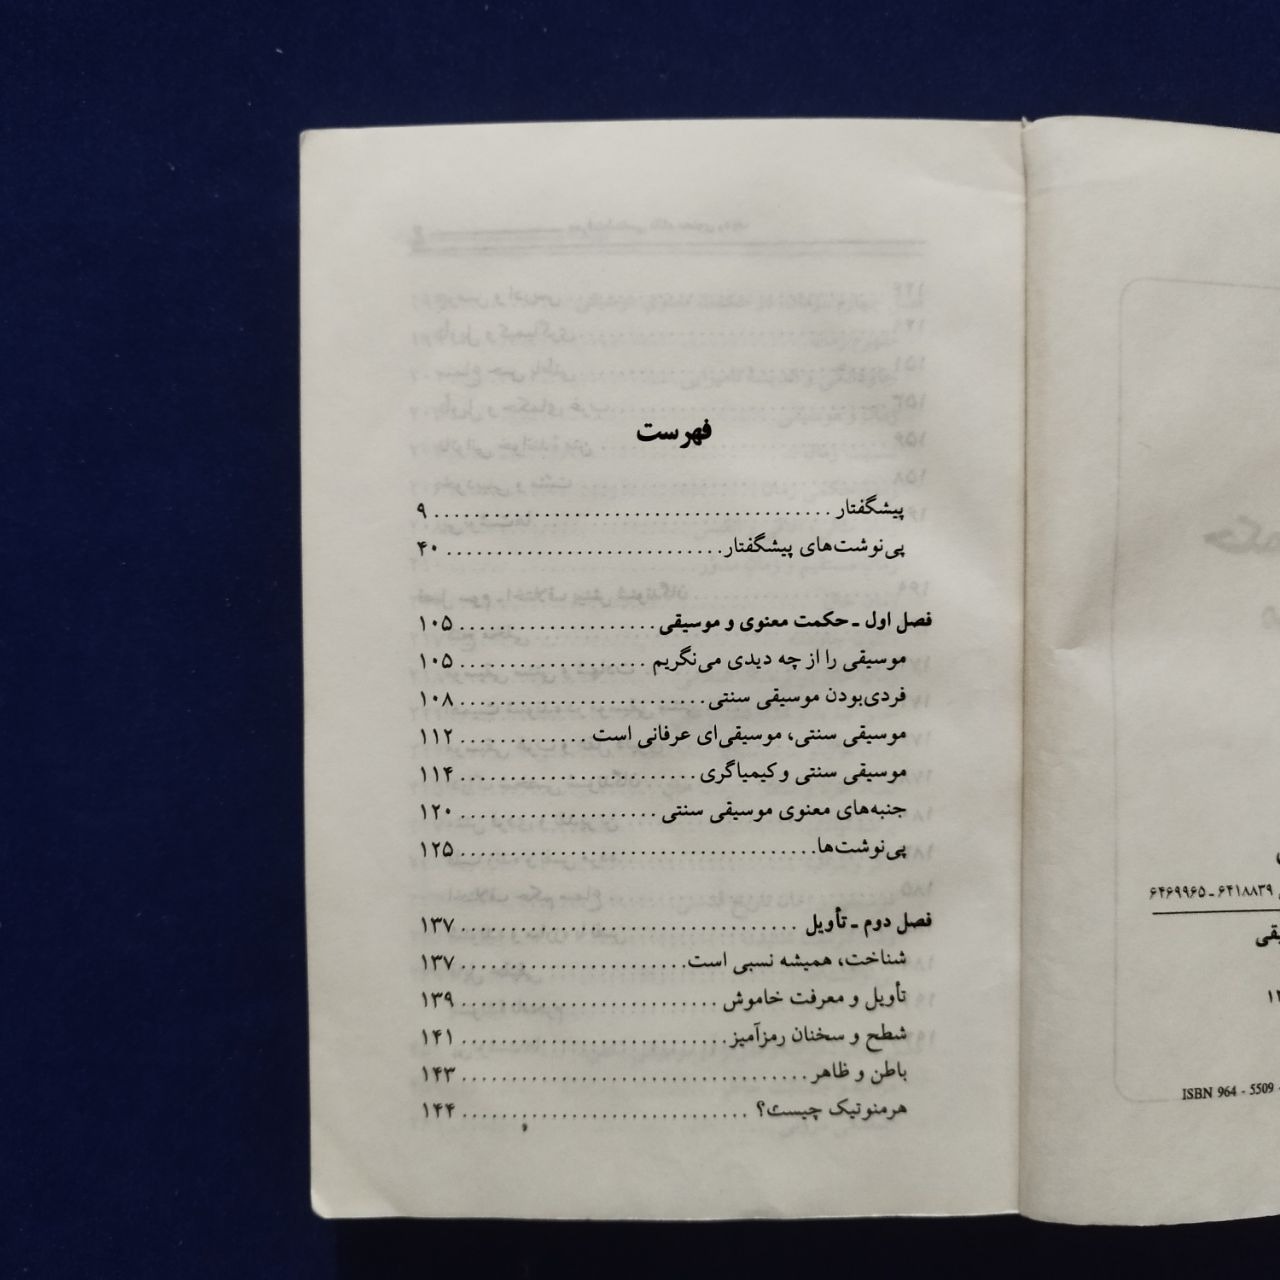 فهرست
پیشگفتار ........................................ ۹
پی‌نوشت‌های پیشگفتار ............................ ۴۰
فصل اول ـ حکمت معنوی و موسیقی .................... ۱۰۵
موسیقی را از چه دیدی می‌نگریم ................... ۱۰۵
فردی‌بودن موسیقی سنتی ......................... ۱۰۸
موسیقی سنتی، موسیقی‌ای عرفانی است ............. ۱۱۲
موسیقی سنتی و کیمیاگری ........................ ۱۱۴
جنبه‌های معنوی موسیقی سنتی .................... ۱۲۰
پی‌نوشت‌ها .................................... ۱۲۵
فصل دوم ـ تأویل .................................. ۱۳۷
شناخت، همیشه نسبی است ....................... ۱۳۷
تأویل و معرفت خاموش .......................... ۱۳۹
شطح و سخنان رمزآمیز .......................... ۱۴۱
باطن و ظاهر ................................... ۱۴۳
هرمنوتیک چیست؟ ............................. ۱۴۴
۶۴۱۸۸۳۹ ـ ۶۴۶۹۹۶۵
ISBN 964 - 5509 -